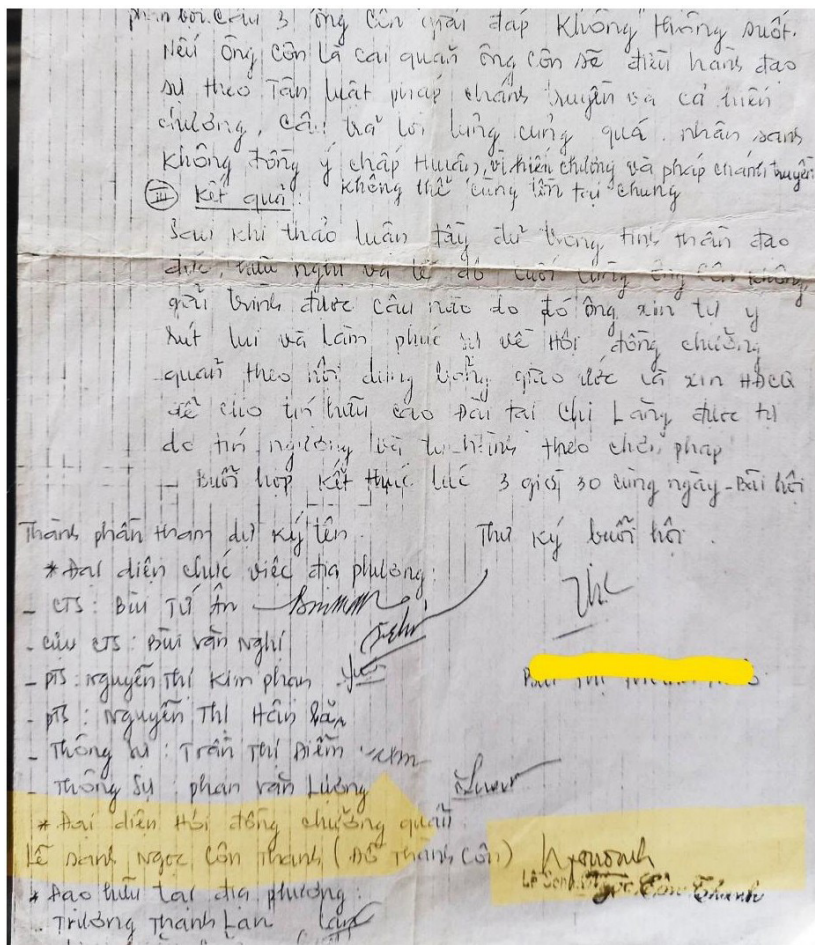 phản bội. Câu 3 ông Côn giải đáp không thông suốt.
Nếu ông Côn là cai quản ông Côn sẽ điều hành đạo
sự theo Tân luật pháp chánh truyền và cả hiến
chương, câu trả lời lúng cúng quá. nhân sanh
không đồng ý chấp Huấn, vì hiến chương và pháp chánh truyền
không thể cùng tồn tại chung
(III) Kết quả:
Sau khi thảo luận đầy đủ trong tinh thần đạo
đức, hữu nghị và lễ độ cuối cùng ông Côn không
giải trình được câu nào do đó ông xin tự ý
rút lui và làm phúc sự về Hội đồng chưởng
quản theo nội dung giao ước và xin HĐCQ
để cho tín hữu cao Đài tại Chi Lăng được tự
do tín ngưỡng và tu hành theo chơn pháp
- Buổi họp kết thúc lúc 3 giờ 30 cùng ngày - Bãi hội
Thành phần tham dự ký tên.
Thư ký buổi hội.
* Đại diện chức việc địa phương:
- CTS: Bùi Tứ Ân
- cựu CTS: Bùi Văn Nghí
- PTS: Nguyễn Thị Kim Phan
- PTS: Nguyễn Thị Hân
- Thông sự: Trần Thị Điểm
- Thông Sự: Phan Văn Lượng
* Đại diện Hội đồng chưởng quản
Lễ Sanh Ngọc Côn Thanh (Đỗ Thành Côn)
Lễ Sanh Ngọc Côn Thanh
* Đạo hữu tại địa phương:
Trương Thanh Lan